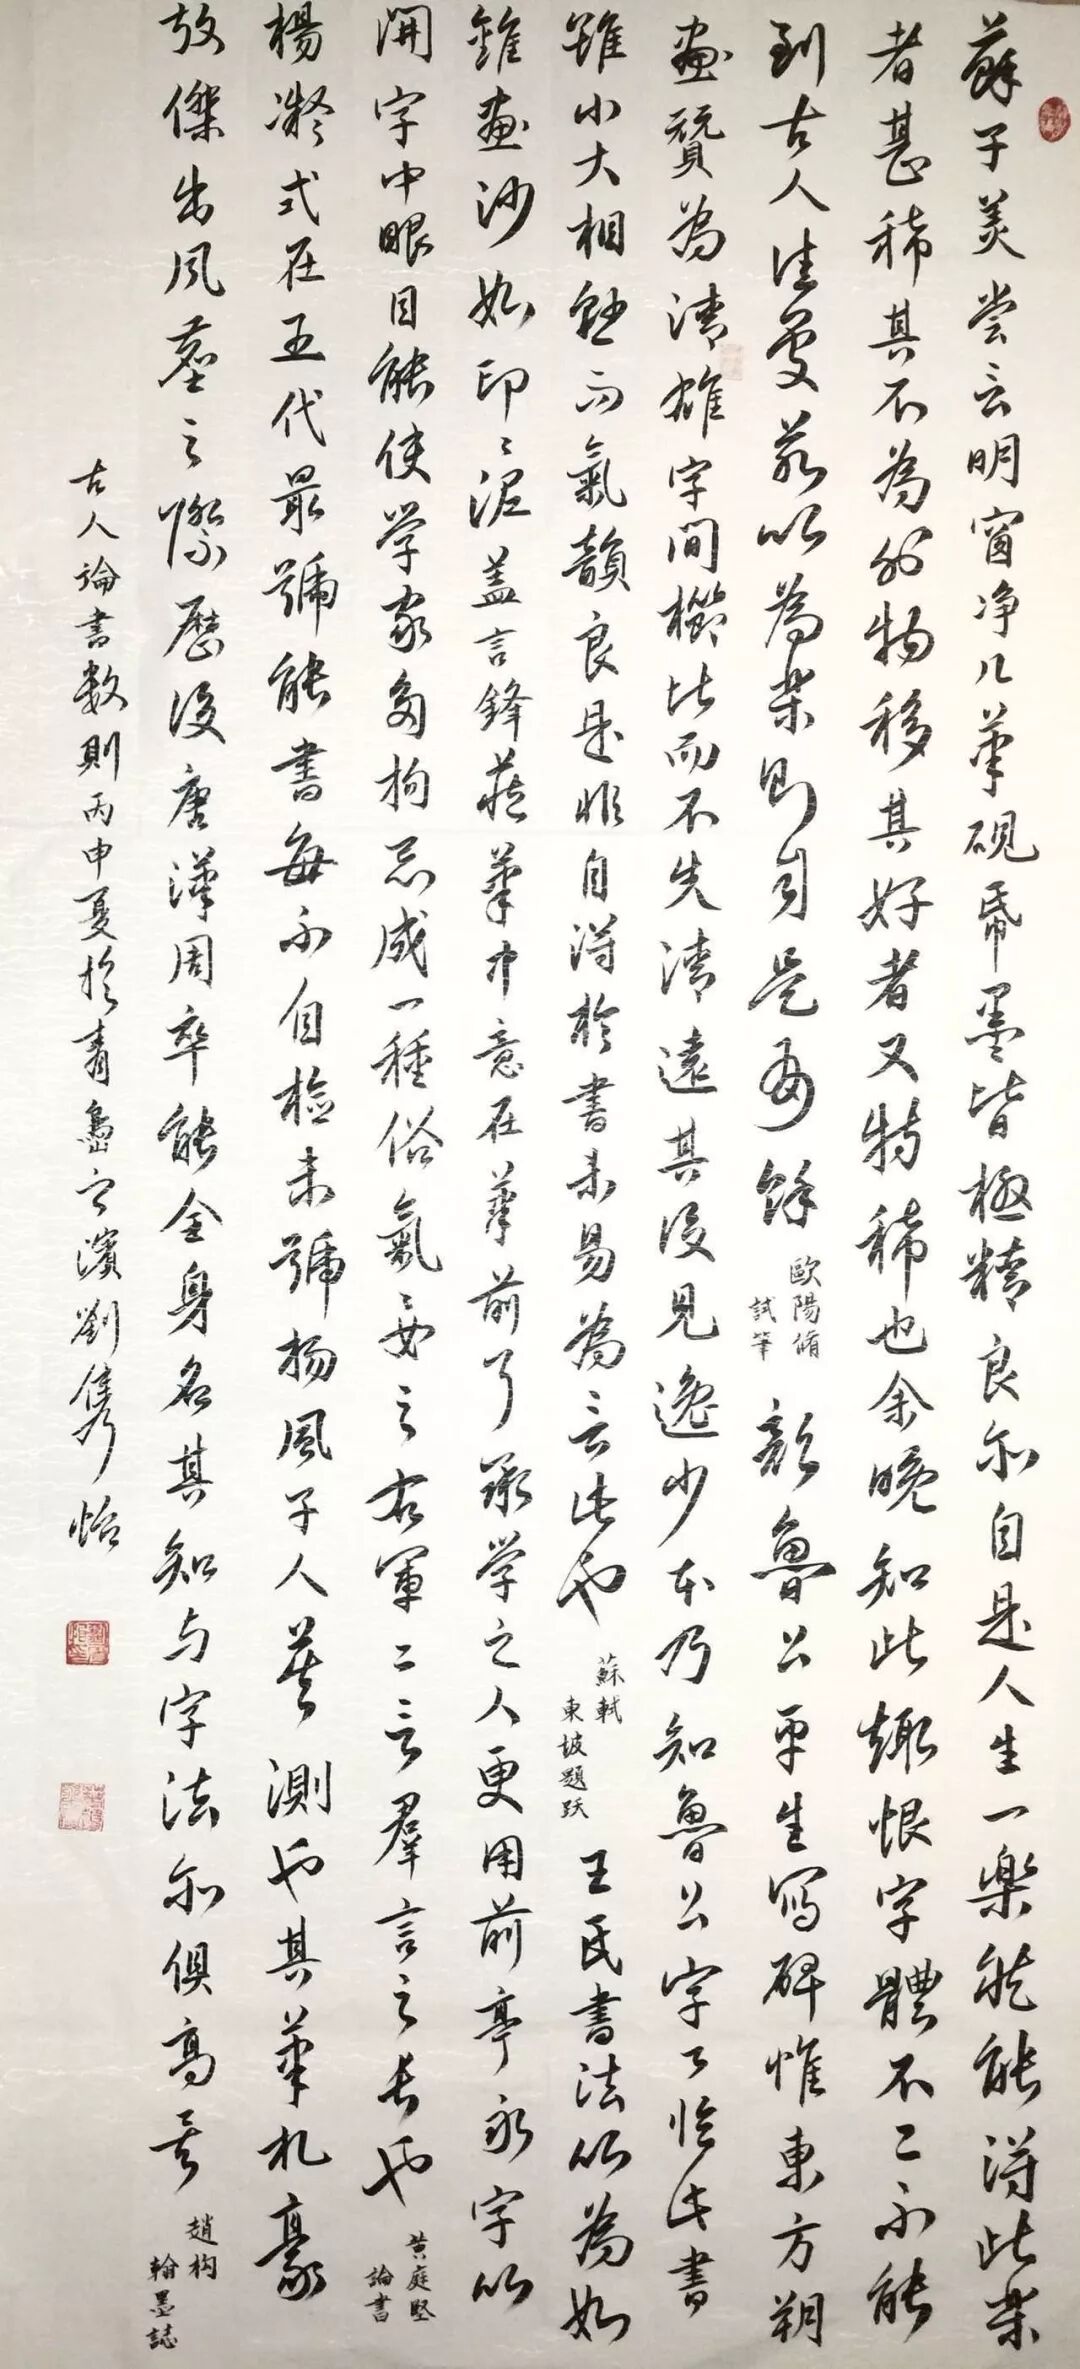 蘇子美嘗言明窗净几筆硯帋墨皆極精良亦自是人生一樂然能得此樂
者甚稀其不為外物移其好者又特稀也余晚知此趣恨字體不工不能
到古人佳處若以為樂則自是有餘
歐陽脩
試筆
顏魯公平生寫碑惟東方朔
畫贊為清雄字間櫛比而不失清遠其後見逸少本乃知魯公字字臨此書
雖小大相懸而氣韻良是非自得於書未易為言此也
蘇軾
東坡題跋
王氏書法以為如
錐畫沙如印印泥蓋言鋒藏筆中意在筆前耳承學之人更用前亭永字以
開字中眼目能使学家多拘忌成一種俗氣要之右軍二言群言之長也
黄庭堅
論書
楊凝式在五代最號能書每不自檢束號楊風子人莫測也其筆札豪
放傑出風塵之際歷後唐漢周卒能全身名其知与字法亦俱高矣
趙构
翰墨誌
古人論書數則丙申夏於青島之濱劉隽怡